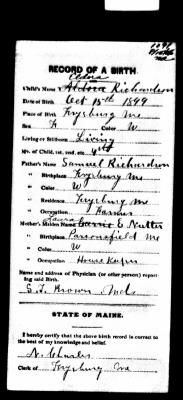 RECORD OF A BIRTH.
Eldora
Child's Name Richardson
Date of Birth Oct 15th 1899
Place of Birth Fryeburg Me
Sex F Color W
Living or Stillborn Living
No. of Child, 1st, 2nd, etc. 4th
Father's Name Samuel Richardson
" Birthplace Fryeburg Me
" Color W
" Residence Fryeburg Me
" Occupation Farmer
Laura
Mother's Maiden Name Carrie E Nutter
" Birthplace Parsonsfield Me
" Color W
" Occupation House Keeper
Name and address of Physician (or other person) reporting said Birth.
S. T. Brown, Md
STATE OF MAINE.
I hereby certify that the above birth record is correct to
the best of my knowledge and belief.
N. Charles
Clerk of Fryeburg Me